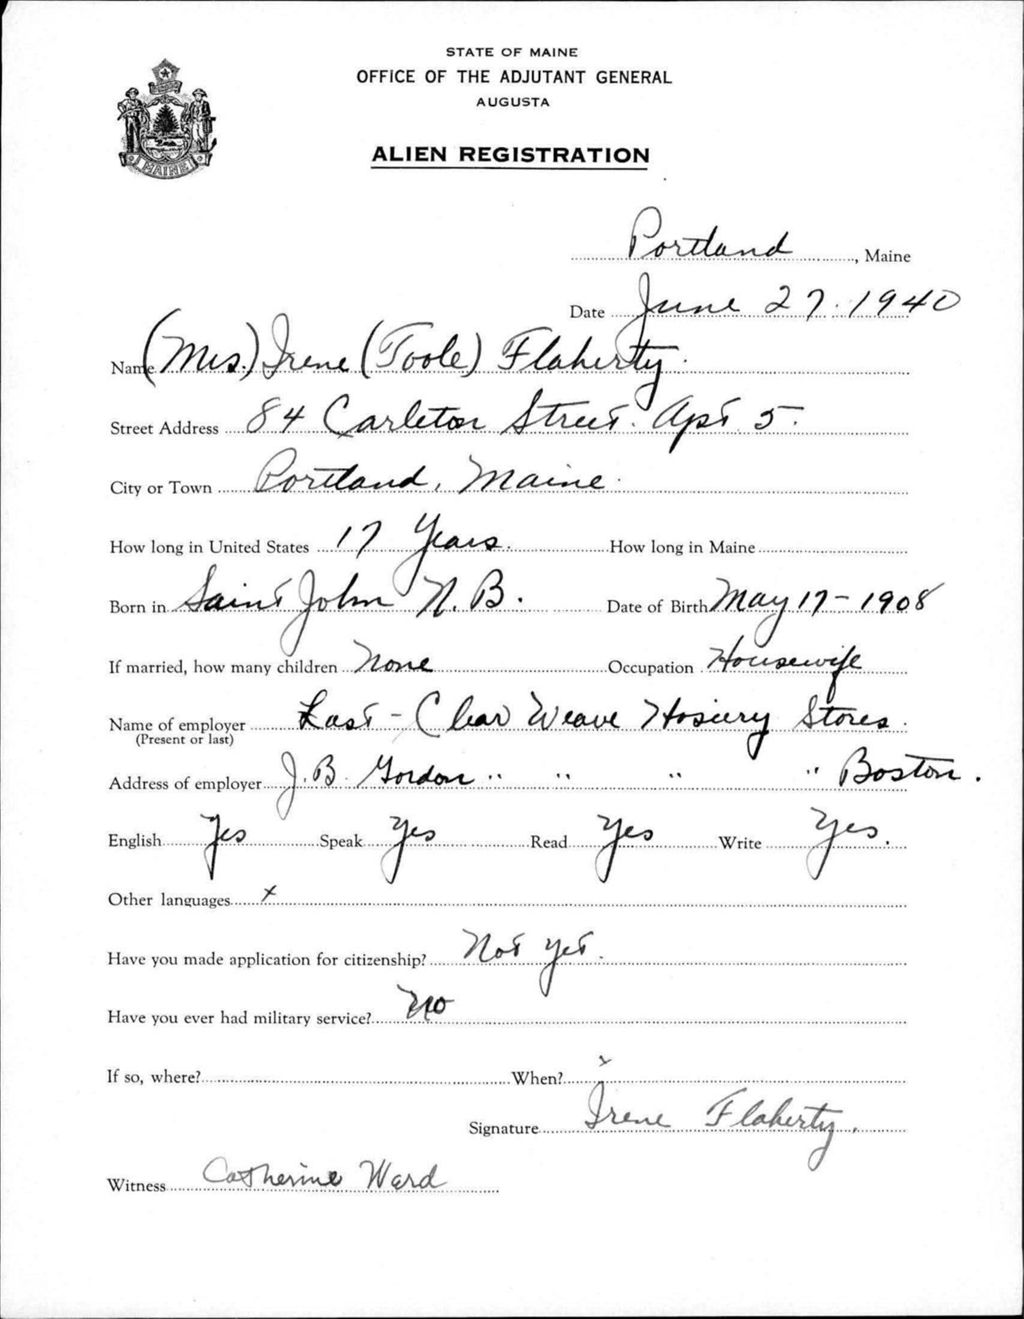 STATE OF MAINE
OFFICE OF THE ADJUTANT GENERAL
AUGUSTA
ALIEN REGISTRATION
MAINE
Portland, Maine
Date June 27. 1940
Name (Mrs.) Irene (Toole) Flaherty.
Street Address 84 Carleton Street. Apt 5.
City or Town Portland, Maine.
How long in United States 17 Years. How long in Maine
Born in Saint John N.B. Date of Birth May 17-1908
If married, how many children None Occupation Housewife
Name of employer Last - Clear Weave Hosiery Stores.
(Present or last)
Address of employer J.B. Gordon " " " " Boston.
English Yes Speak Yes Read Yes Write Yes.
Other languages x
Have you made application for citizenship? Not yet.
Have you ever had military service? No
If so, where? When? x
Signature Irene Flaherty.
Witness Catherine Ward